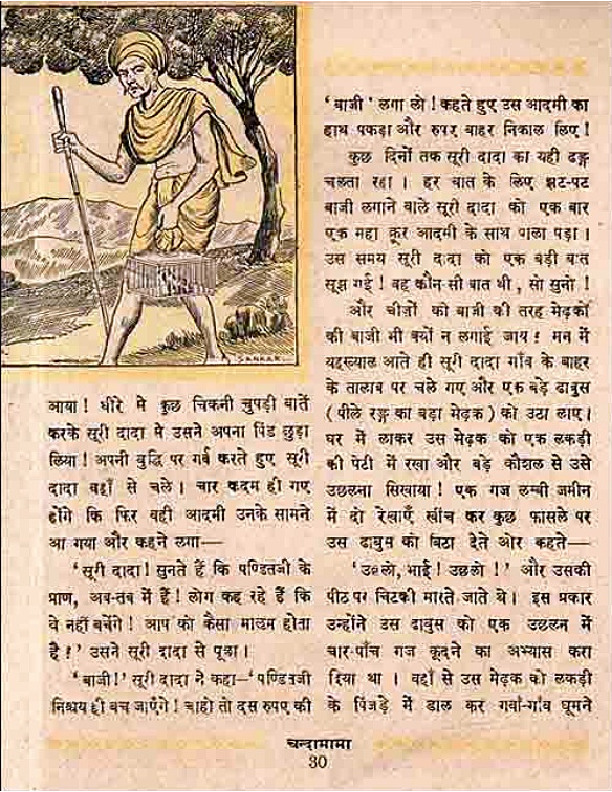 SANKAR
आया! धीरे से कुछ चिकनी चुपड़ी बातें
करके सूरी दादा से उसने अपना पिंड छुड़ा
लिया! अपनी बुद्धि पर गर्व करते हुए सूरी
दादा वहाँ से चले। चार कदम ही गए
होंगे कि फिर वही आदमी उनके सामने
आ गया और कहने लगा—
'सूरी दादा! सुनते हैं कि पण्डितजी के
प्राण, अब-तब में हैं! लोग कह रहे हैं कि
वे नहीं बचेंगे! आप को कैसा मालूम होता
है?' उसने सूरी दादा से पूछा।
'बाजी!' सूरी दादा ने कहा—'पण्डितजी
निश्चय ही बच जाएँगे! चाहो तो दस रुपए की
'बाजी' लगा लो! कहते हुए उस आदमी का
हाथ पकड़ा और रुपए बाहर निकाल लिए!
कुछ दिनों तक सूरी दादा का यही ढङ्ग
चलता रहा। हर बात के लिए झट-पट
बाजी लगाने वाले सूरी दादा को एक बार
एक महा क्रूर आदमी के साथ पाला पड़ा।
उस समय सूरी दादा को एक बड़ी बात
सूझ गई! वह कौन-सी बात थी, सो सुनो!
और चीजों को बाजी की तरह मेढ़कों
की बाजी भी क्यों न लगाई जाय? मन में
यह ख्याल आते ही सूरी दादा गाँव के बाहर
के तालाब पर चले गए और एक बड़े ढाबुस
(पीले रङ्ग का बड़ा मेढ़क) को उठा लाए।
घर में लाकर उस मेढ़क को एक लकड़ी
की पेटी में रखा और बड़े कौशल से उसे
उछलना सिखाया! एक गज लम्बी जमीन
में दो रेखाएँ खींच कर कुछ फासले पर
उस ढाबुस को बिठा देते और कहते—
'उछलो, भाई! उछलो!' और उसकी
पीठ पर चिटकी मारते जाते थे। इस प्रकार
उन्होंने उस ढाबुस को एक उछलन में
चार-पाँच गज कूदने का अभ्यास करा
दिया था। वहाँ से उस मेढ़क को लकड़ी
के पिंजड़े में डाल कर गवाँ-गाँव घूमने
चन्दामामा
30